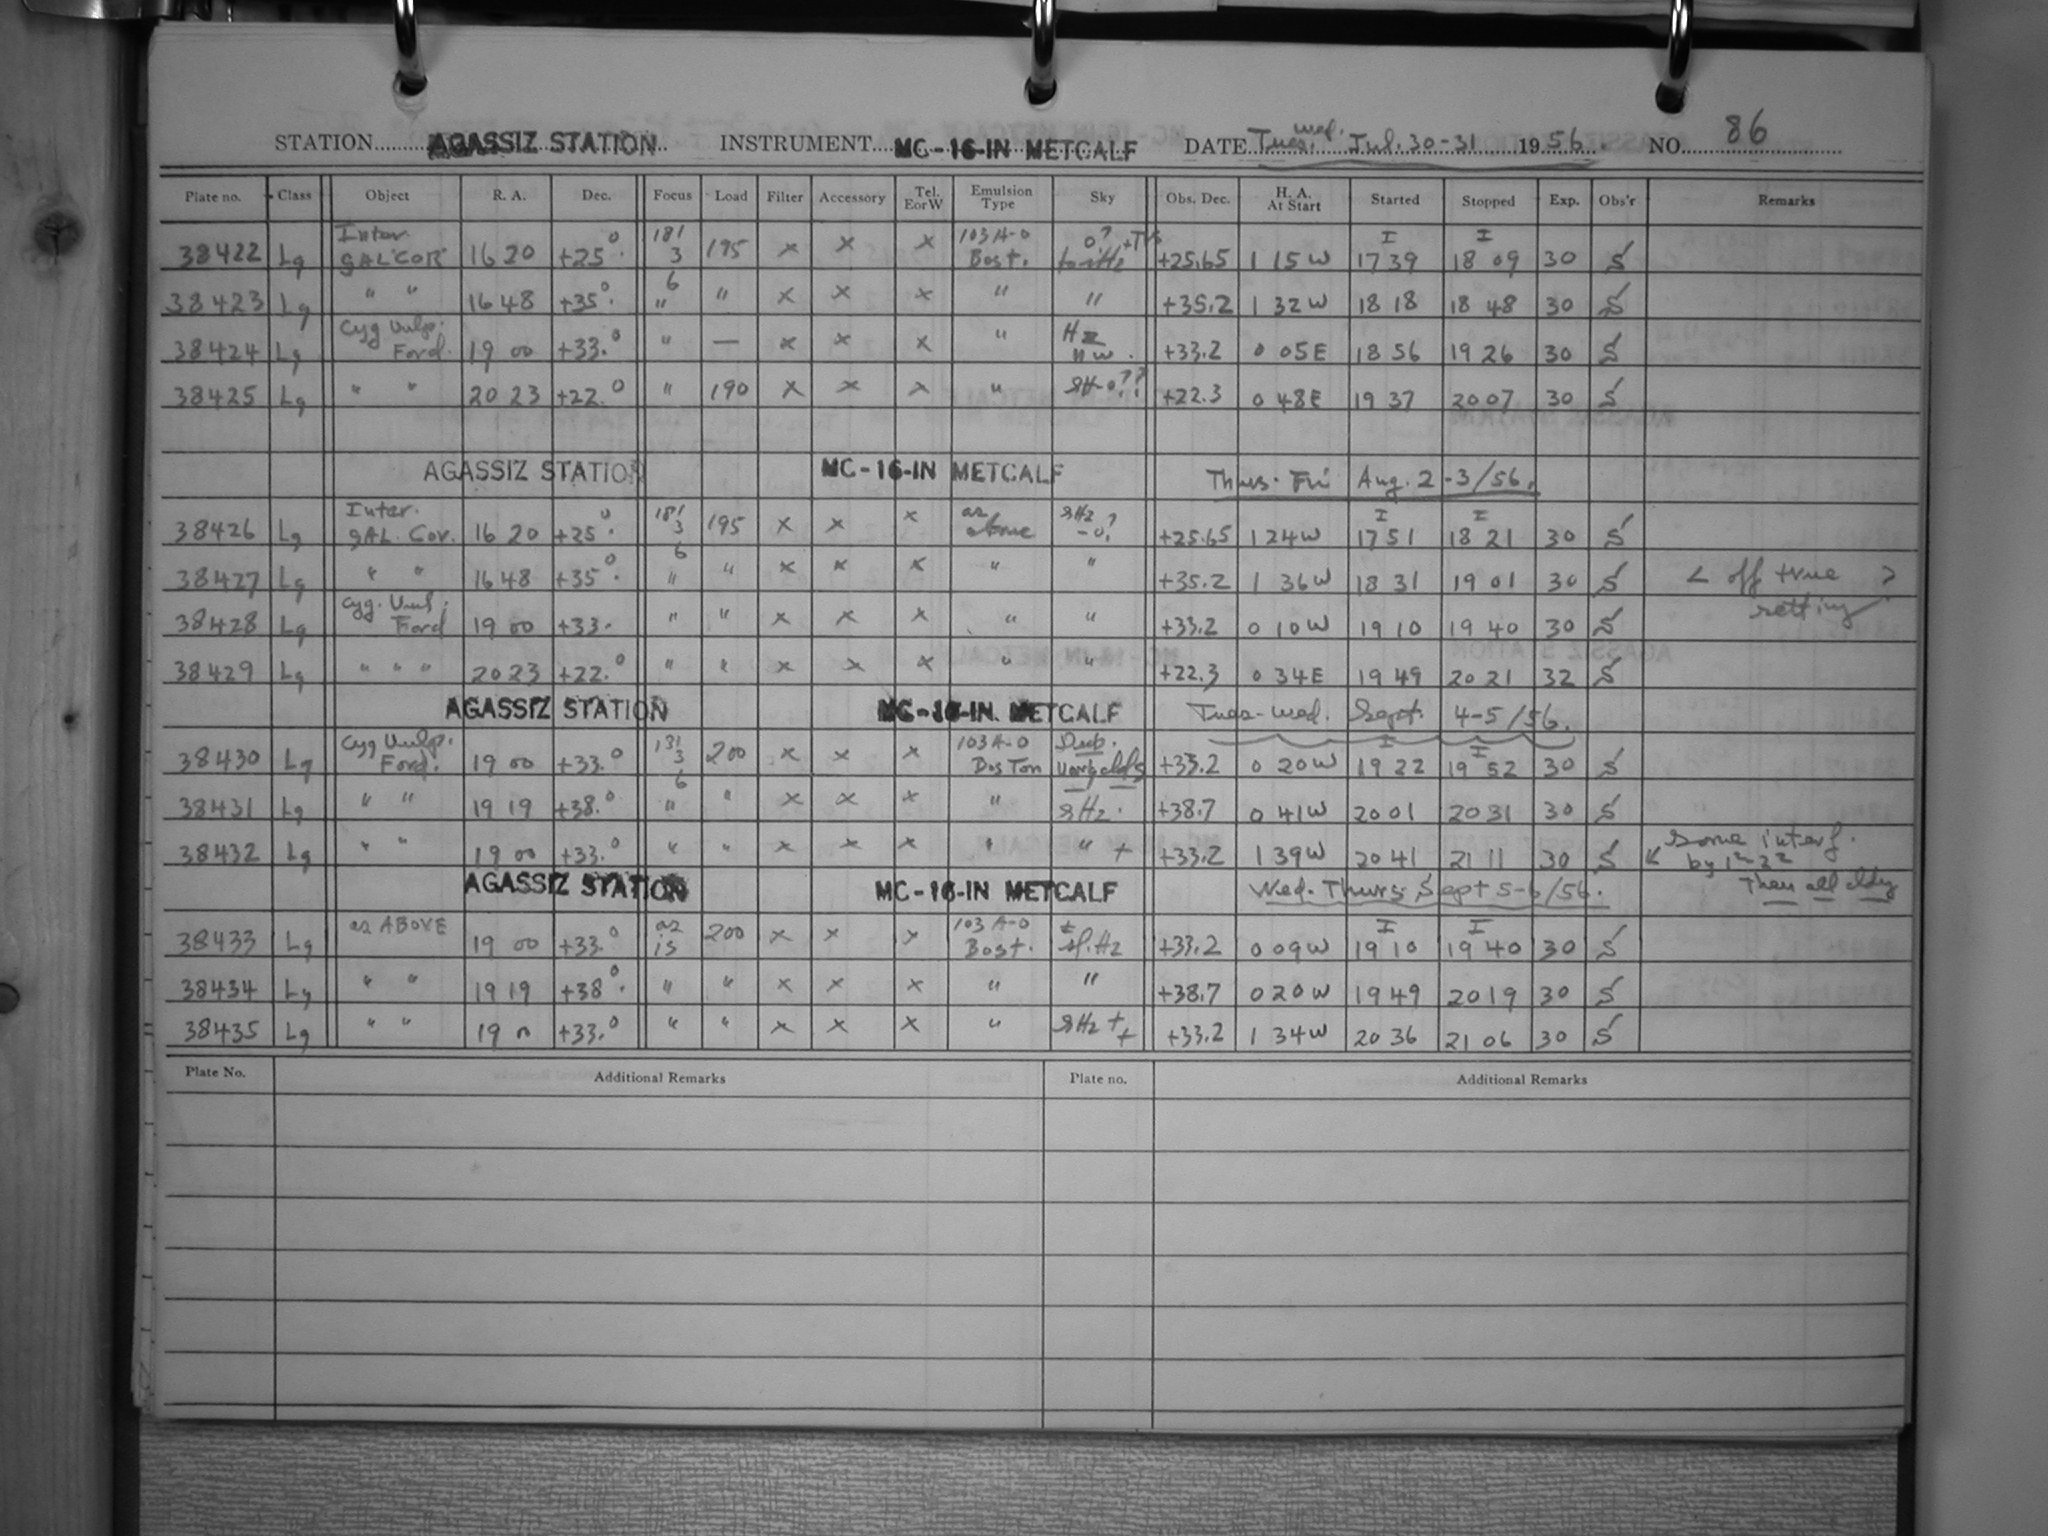 STATION AGASSIZ STATION INSTRUMENT MC-16-IN METCALF DATE Tues. Wed. Jul. 30-31 1956. NO. 86
Plate no. Class Object R. A. Dec. Focus Load Filter Accessory Tel. EorW Emulsion Type Sky Obs. Dec. H. A. At Start Started Stopped Exp. Obs'r Remarks
38422 Lg Inter. GAL COR 16 20 +25°. 181 3 6 195 × × × 103A-O Bost. +25.65 1 15 W I 17 39 I 18 09 30 S
38423 Lg " " 16 48 +35°. " " × × × " " +35.2 1 32 W 18 18 18 48 30 S
38424 Lg Cyg Vulp. Ford. 19 00 +33.° " — × × × " Hz NW. +33.2 0 05 E 18 56 19 26 30 S
38425 Lg " " 20 23 +22.° " 190 × × × " +22.3 0 48 E 19 37 20 07 30 S
AGASSIZ STATION MC-16-IN METCALF Thurs. Fri Aug. 2-3/56.
38426 Lg Inter. GAL. Cor. 16 20 +25°. 181 3 6 195 × × × as above sHz -0? +25.65 1 24 W I 17 51 I 18 21 30 S
38427 Lg " " 16 48 +35°. " " × × × " " +35.2 1 36 W 18 31 19 01 30 S < off true setting >
38428 Lg Cyg. Vul. Ford 19 00 +33. " " × × × " " +33.2 0 10 W 19 10 19 40 30 S
38429 Lg " " " 20 23 +22.° " " × × × " " +22.3 0 34 E 19 49 20 21 32 S
AGASSIZ STATION MC-16-IN METCALF Tues-Wed. Sept. 4-5/56.
38430 Lg Cyg Vulp. Ford. 19 00 +33.° 131 3 6 200 × × × 103A-O Boston +33.2 0 20 W I 19 22 I 19 52 30 S
38431 Lg " " 19 19 +38.° " " × × × " sHz. +38.7 0 41 W 20 01 20 31 30 S
38432 Lg " " 19 00 +33.° " " × × × " " + +33.2 1 39 W 20 41 21 11 30 S some interf. by Then all cldy
AGASSIZ STATION MC-16-IN METCALF Wed. Thurs. Sept 5-6/56.
38433 Lg as ABOVE 19 00 +33.° as is 200 × × × 103A-O Bost. ± sl.Hz +33.2 0 09 W I 19 10 I 19 40 30 S
38434 Lg " " 19 19 +38°. " " × × × " " +38.7 0 20 W 19 49 20 19 30 S
38435 Lg " " 19 +33.° " " × × × " sHz + + +33.2 1 34 W 20 36 21 06 30 S
Plate No. Additional Remarks Plate no. Additional Remarks